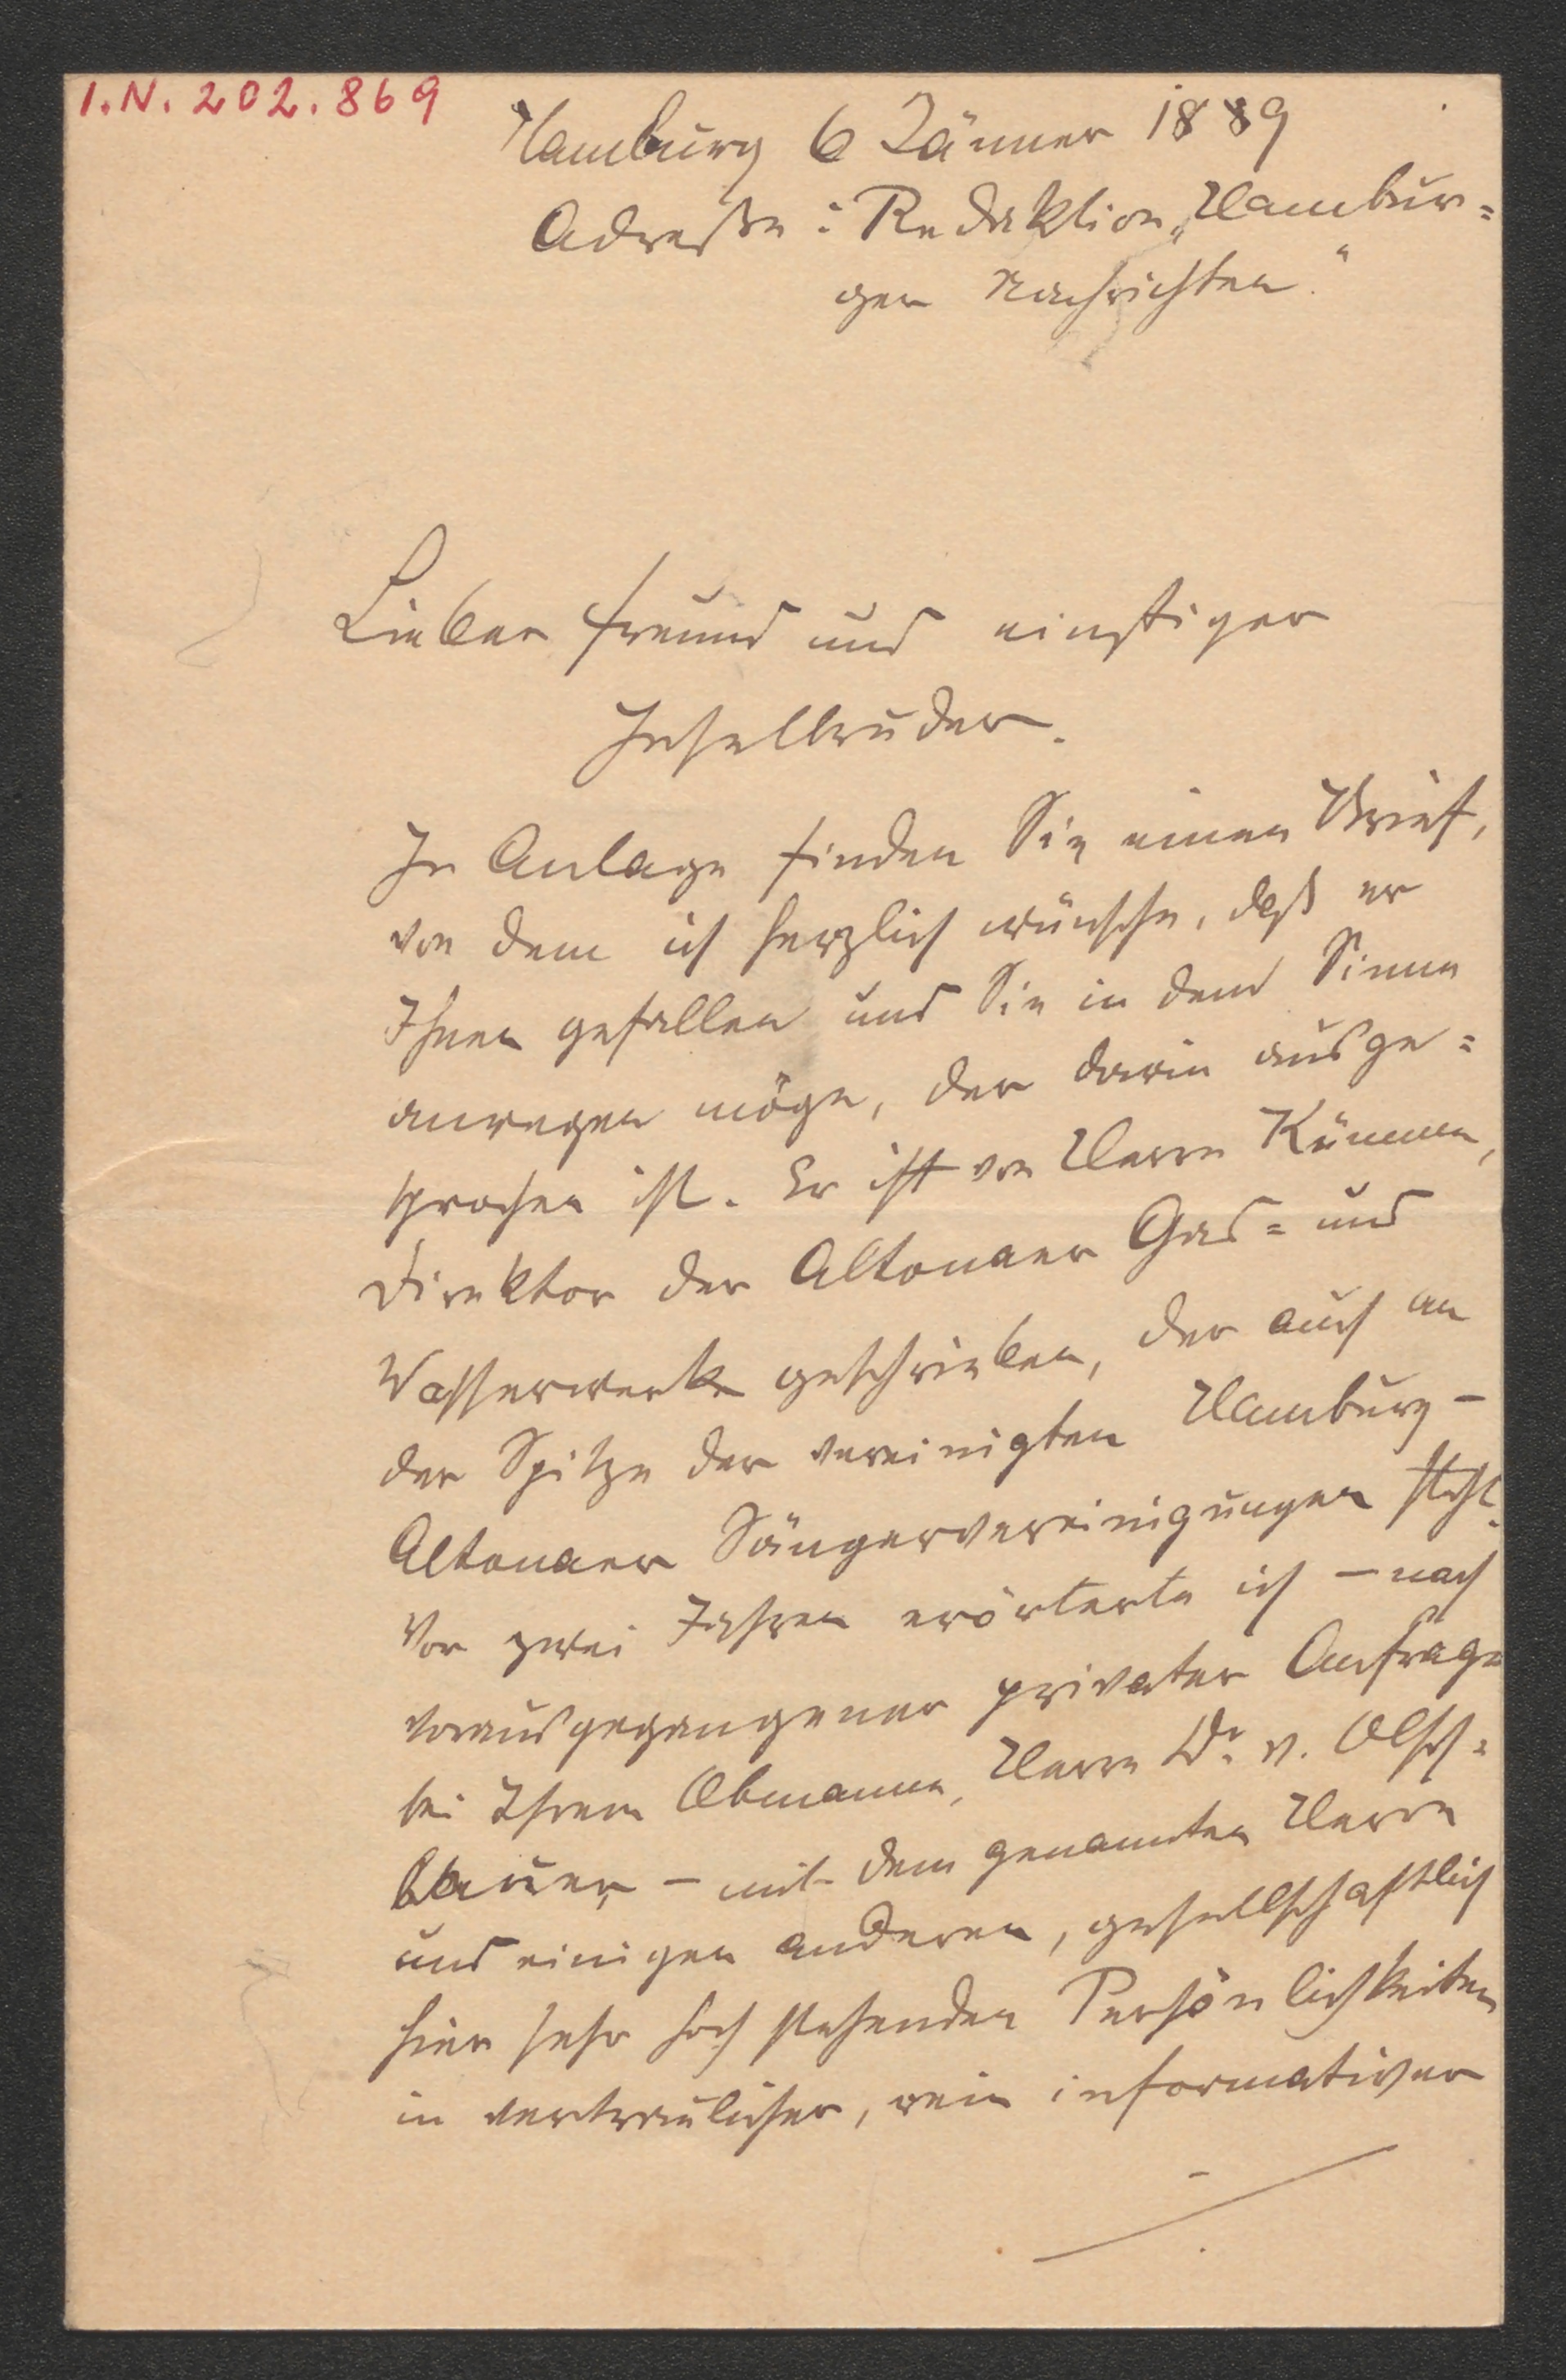 I.N. 202.869
Hamburg 6 Jänner 1889
Adresse: Redaktion „Hambur=
ger Nachrichten."
Lieber Freund und einstiger
Inselbruder.
In Anlage finden Sie einen Brief,
von dem ich herzlich wünsche, daß er
Ihnen gefallen und Sie in dem Sinne
anregen möge, der darin ausge=
sprochen ist. Er ist von Herrn Kümmel,
Direktor der Altonaer Gas= und
Wasserwerke geschrieben, der auch an
der Spitze der vereinigten Hamburg-
Altonaer Sängervereinigungen steht.
Vor zwei Jahren erörterte ich – nach
vorausgegangener privater Anfrage
bei Ihrem Obmanne, Herrn Dr. v. Olsch=
bauer – mit dem genannten Herrn
und einigen anderen, gesellschaftlich
hier sehr hoch stehenden Persönlichkeiten
in vertraulicher, rein informativer